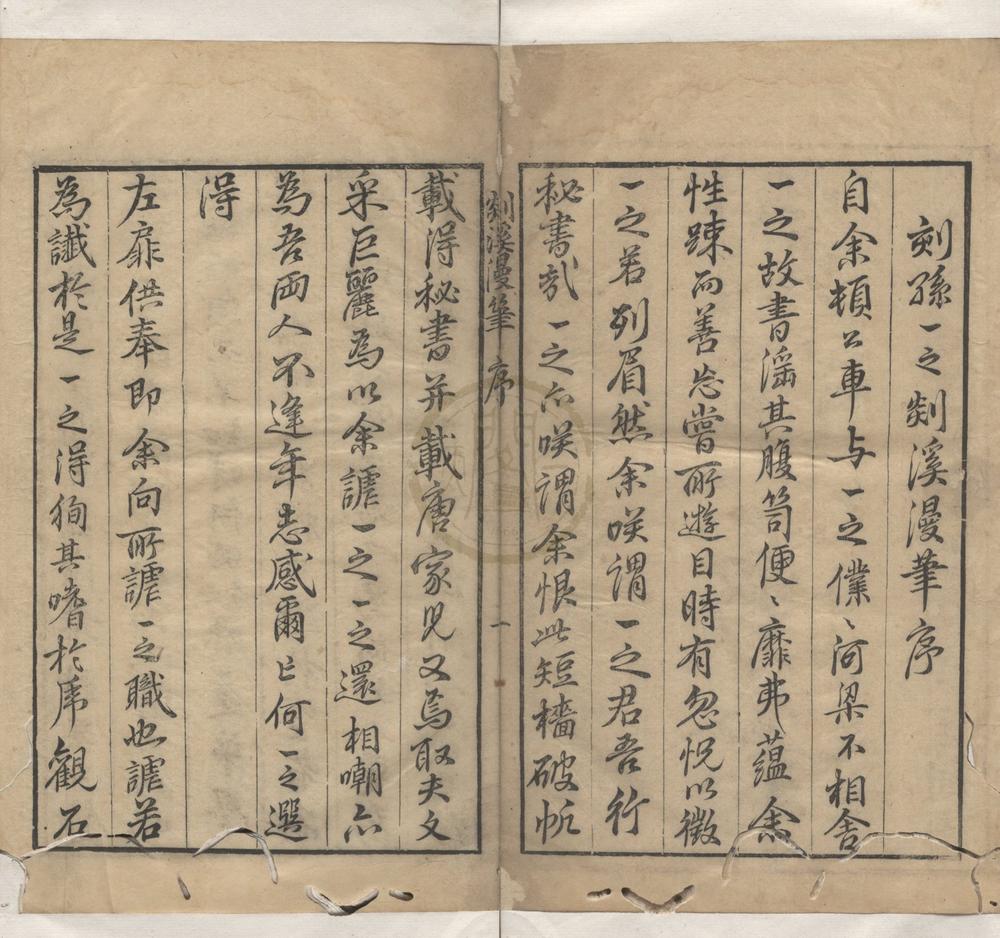 刻孫一之剡溪漫筆序
自余頓公車与一之僕〻河梁不相舍
一之故書滛其腹笥便〻靡弗蘊余
性踈而善忘嘗所遊目時有忽怳以徵
一之若列眉然余咲謂一之君吾行
秘書㢤一之亦咲謂余恨此短檣破帆
剡溪漫筆 序 一
載淂秘書并載唐家児又焉取夫文
采巨麗為以余謔一之一之還相嘲亦
為吾両人不逢年志感爾亡何一之選
淂
左扉供奉即余向所謔一之職也謔若
為讖於是一之淂狥其嗜於乕觀石